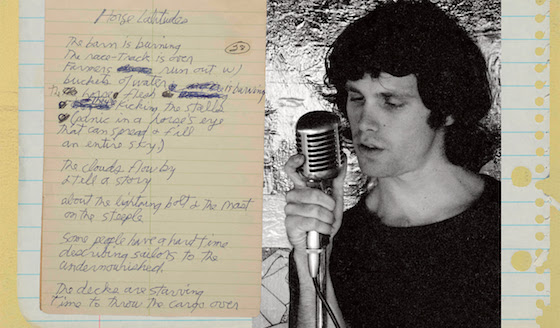 Horse Latitudes
28
The barn is burning
The race-track is over
Farmers run out w/
buckets of water
the horse flesh is burning
they're kicking the stalls
(panic in a horse's eye
that can spread & fill
an entire sky)
The clouds flow by
& tell a story
about the lightning bolt & the mast
on the steeple
Some people have a hard time
describing sailors to the
undernourished.
The decks are starving
Time to throw the cargo over